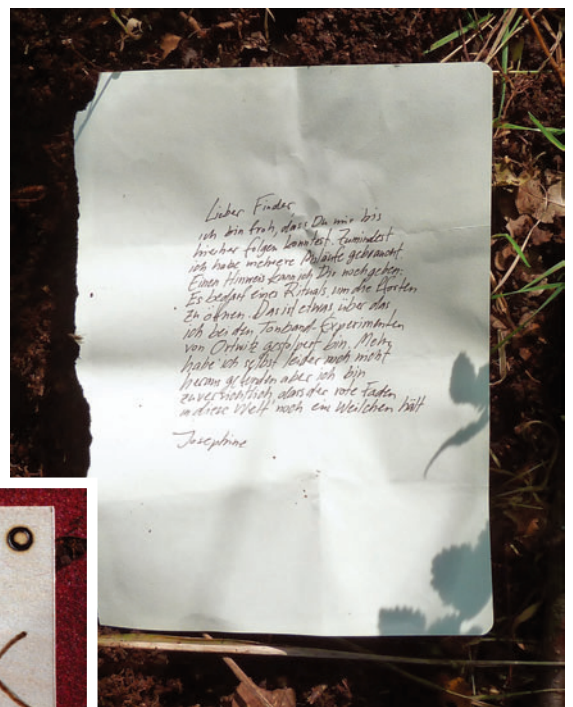 Lieber Finder
ich bin froh, dass Du mir bis
hierher folgen konntest. Zumindest
ich habe mehrere Anläufe gebraucht.
Einen Hinweis kann ich Dir noch geben:
Es bedarf eines Rituals, um die Pforten
zu öffnen. Das ist etwas, über das
ich bei den Tonband-Experimenten
von Ortwitz gestolpert bin. Mehr
habe ich selbst leider noch nicht
heraus gefunden aber ich bin
zuversichtlich, dass der rote Faden
in diese Welt noch ein Weilchen hält
Josephine